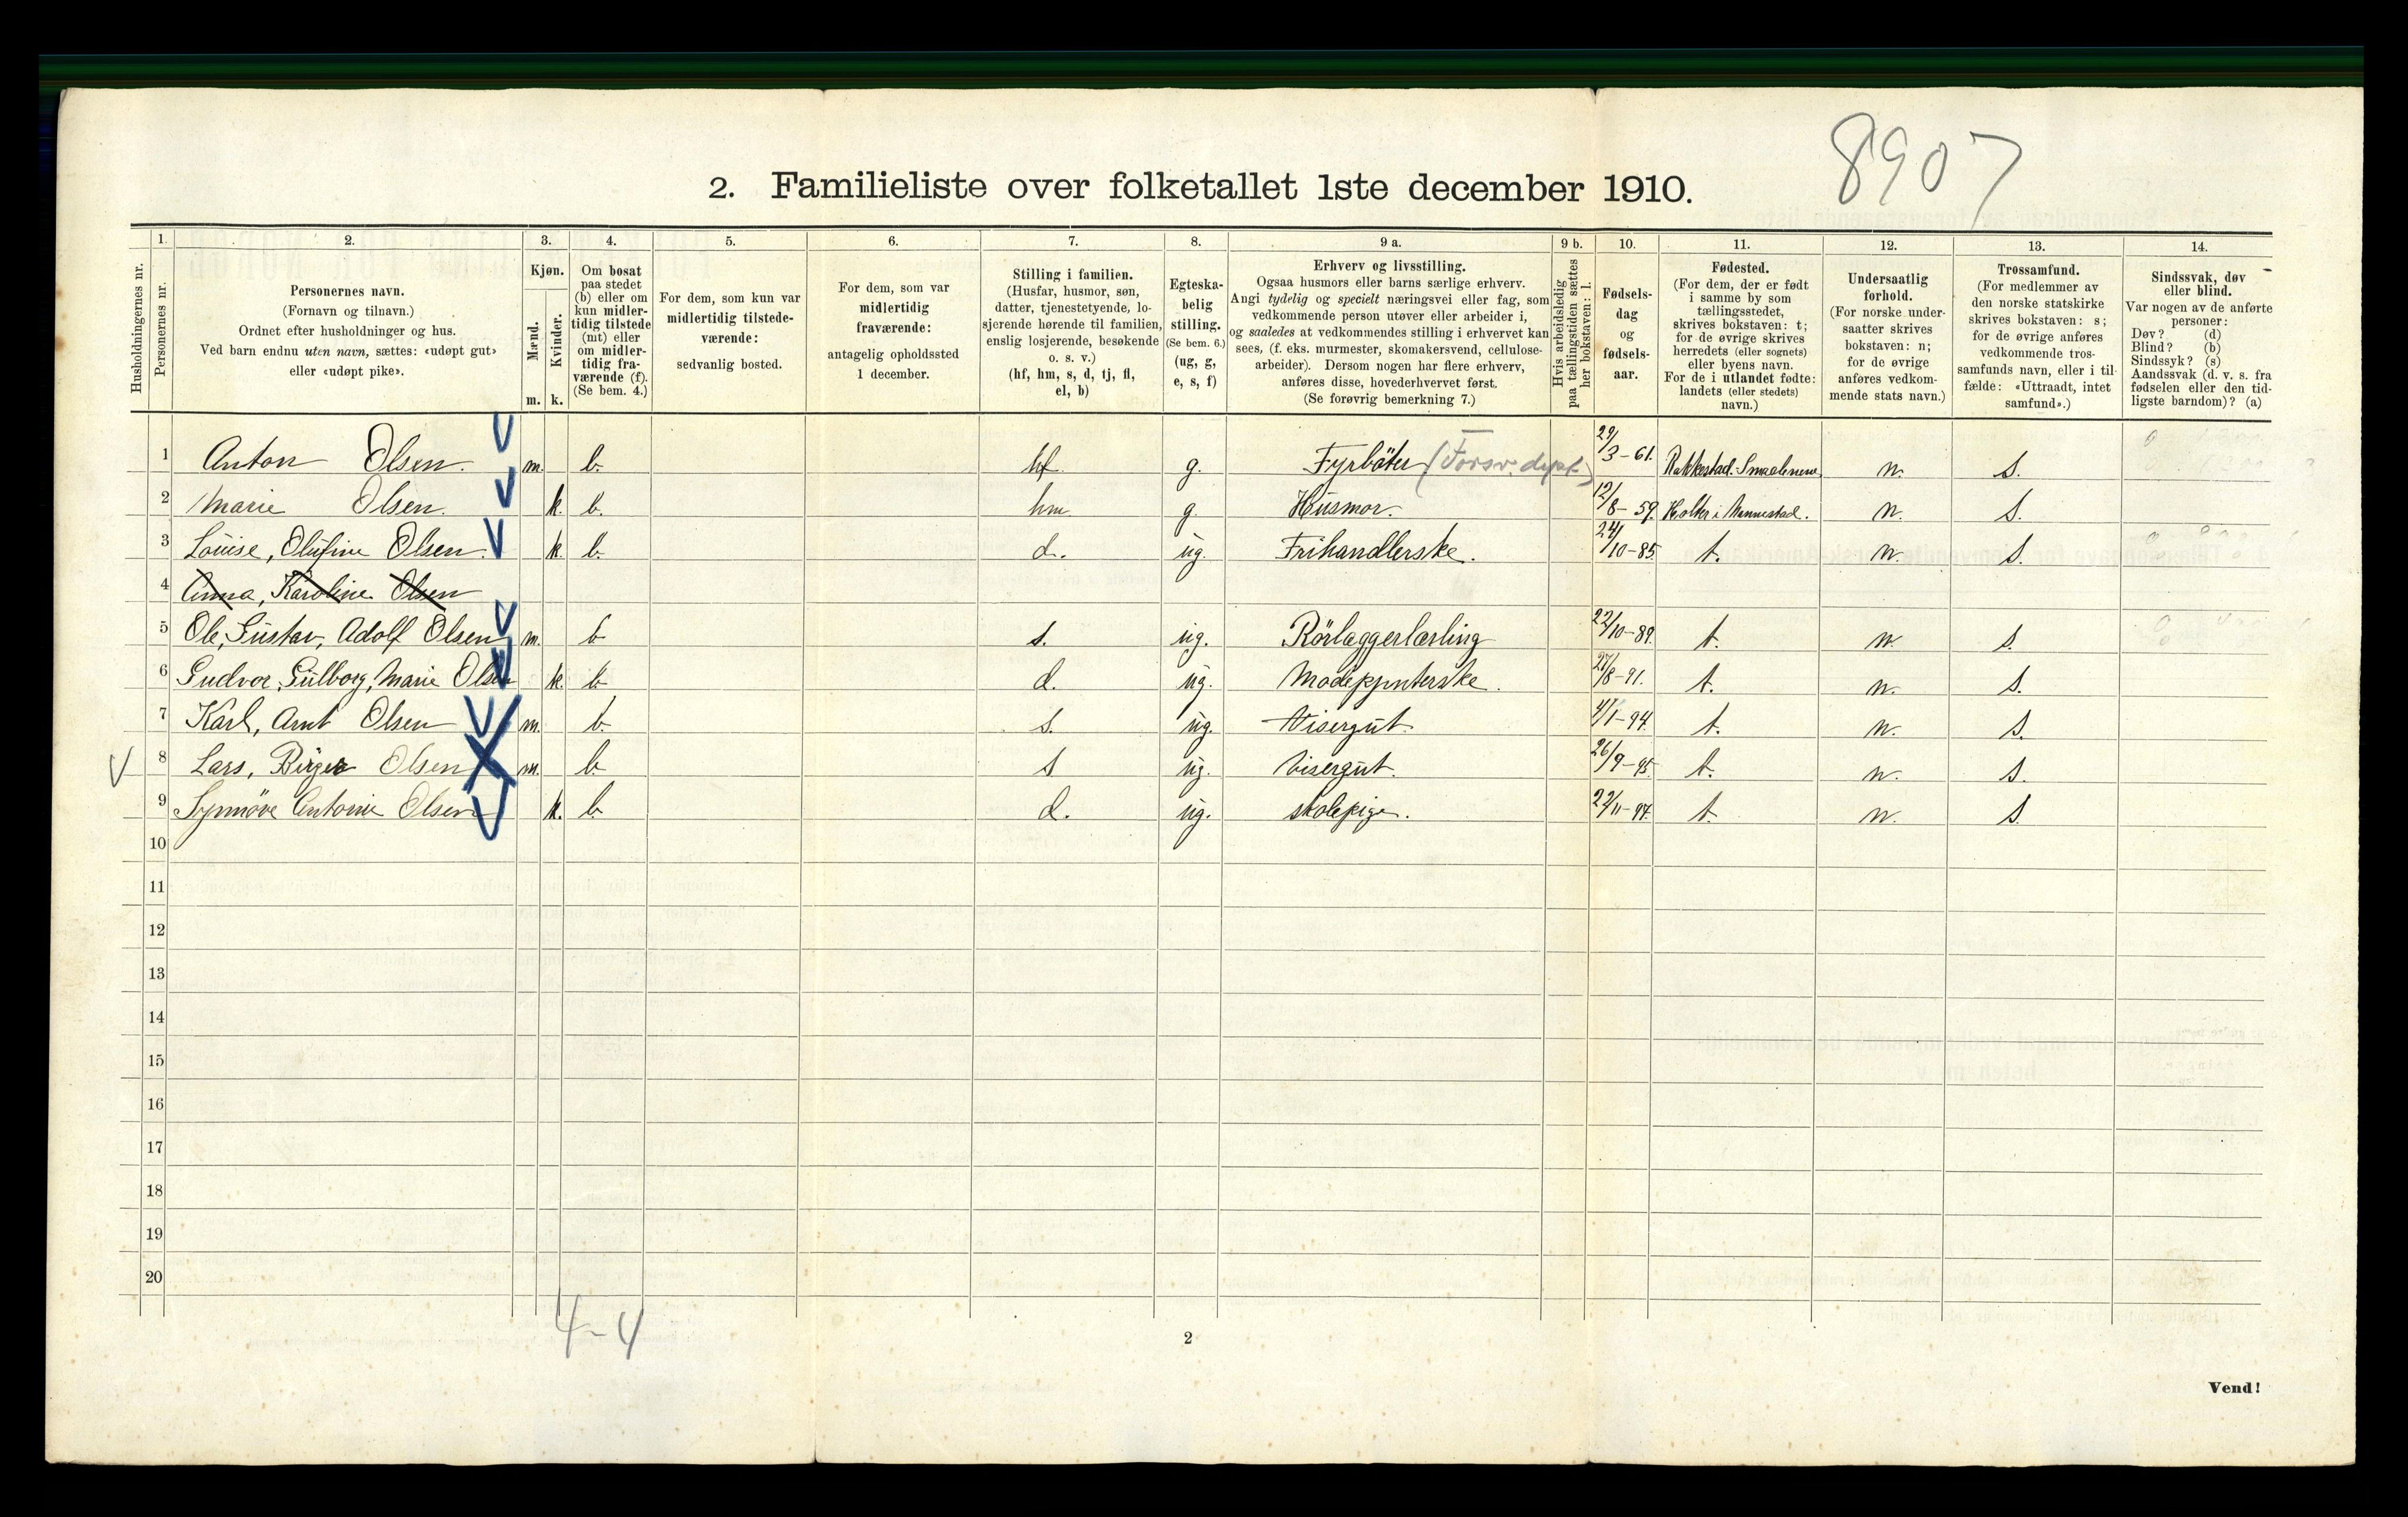 8907
2. Familieliste over folketallet 1ste december 1910.
Husholdningernes nr.
1.
Personernes nr.
2.
Personernes navn.
(Fornavn og tilnavn.)
Ordnet efter husholdninger og hus.
Ved barn endnu uten navn, sættes: «udøpt gut»
eller «udøpt pike».
3.
Kjøn.
Mænd.
Kvinder.
m. k.
4.
Om bosat
paa stedet
(b) eller om
kun midler-
tidig tilstede
(mt) eller
om midler-
tidig fra-
værende (f).
(Se bem. 4.)
5.
For dem, som kun var
midlertidig tilstede-
værende:
sedvanlig bosted.
6.
For dem, som var
midlertidig
fraværende:
antagelig opholdssted
1 december.
7.
Stilling i familien.
(Husfar, husmor, søn,
datter, tjenestetyende, lo-
sjerende hørende til familien,
enslig losjerende, besøkende
o. s. v.)
(hf, hm, s, d, tj, fl,
el, b)
8.
Egteska-
belig
stilling.
(Se bem. 6.)
(ug, g,
e, s, f)
9 a.
Erhverv og livsstilling.
Ogsaa husmors eller barns særlige erhverv.
Angi tydelig og specielt næringsvei eller fag, som
vedkommende person utøver eller arbeider i,
og saaledes at vedkommendes stilling i erhvervet kan
sees, (f. eks. murmester, skomakersvend, cellulose-
arbeider). Dersom nogen har flere erhverv,
anføres disse, hovederhvervet først.
(Se forøvrig bemerkning 7.)
9 b.
Hvis arbeidsledig
paa tællingstiden sættes
her bokstaven: l.
10.
Fødsels-
dag
og
fødsels-
aar.
11.
Fødested.
(For dem, der er født
i samme by som
tællingsstedet,
skrives bokstaven: t;
for de øvrige skrives
herredets (eller sognets)
eller byens navn.
For de i utlandet fødte:
landets (eller stedets)
navn.)
12.
Undersaatlig
forhold.
(For norske under-
saatter skrives
bokstaven: n;
for de øvrige
anføres vedkom-
mende stats navn.)
13.
Trossamfund.
(For medlemmer av
den norske statskirke
skrives bokstaven: s;
for de øvrige anføres
vedkommende tros-
samfunds navn, eller i til-
fælde: «Uttraadt, intet
samfund».)
14.
Sindssvak, døv
eller blind.
Var nogen av de anførte
personer:
Døv? (d)
Blind? (b)
Sindssyk? (s)
Aandssvak (d. v. s. fra
fødselen eller den tid-
ligste barndom)? (a)
1 Anton Olsen. m. b. hf g. Fyrböter (Forsv. dept.) 29/3-61. Rakkestad. Smaalenene n. s.
2 Marie Olsen. k. b. hm g. Husmor. 12/8-59. Holter i Nannestad. n. s.
3 Louise, Olufine Olsen. k. b. d. ug. Frihandlerske. 24/10-85. t. n. s.
4 Anna, Karoline Olsen
5 Ole, Gustav, Adolf Olsen m. b. s. ug. Rörlæggerlærling 22/10-89. t. n. s.
6 Gudvor, Gulborg, Marie Olsen k. b. d. ug. Modepynterske. 27/8-91. t. n. s.
7 Karl, Arnt Olsen m. b. s. ug. Visergut. 4/1-94. t. n. s.
8 Lars, Birger Olsen m. b. s ug. Visergut. 26/9-95. t. n. s.
9 Synnöve Antonie Olsen k. b. d. ug. skolepige. 22/11-97. t. n. s.
10
11
12
13
14
15
16
17
18
19
20
4-4
2
Vend!